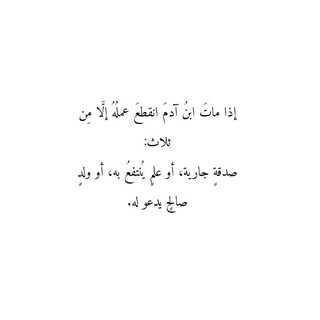 إذا ماتَ ابنُ آدمَ انقطعَ عملُهُ إلَّا مِن
ثلاث:
صدقةٍ جارية، أو علمٍ يُنتفعُ به، أو ولدٍ
صالحٍ يدعو له.